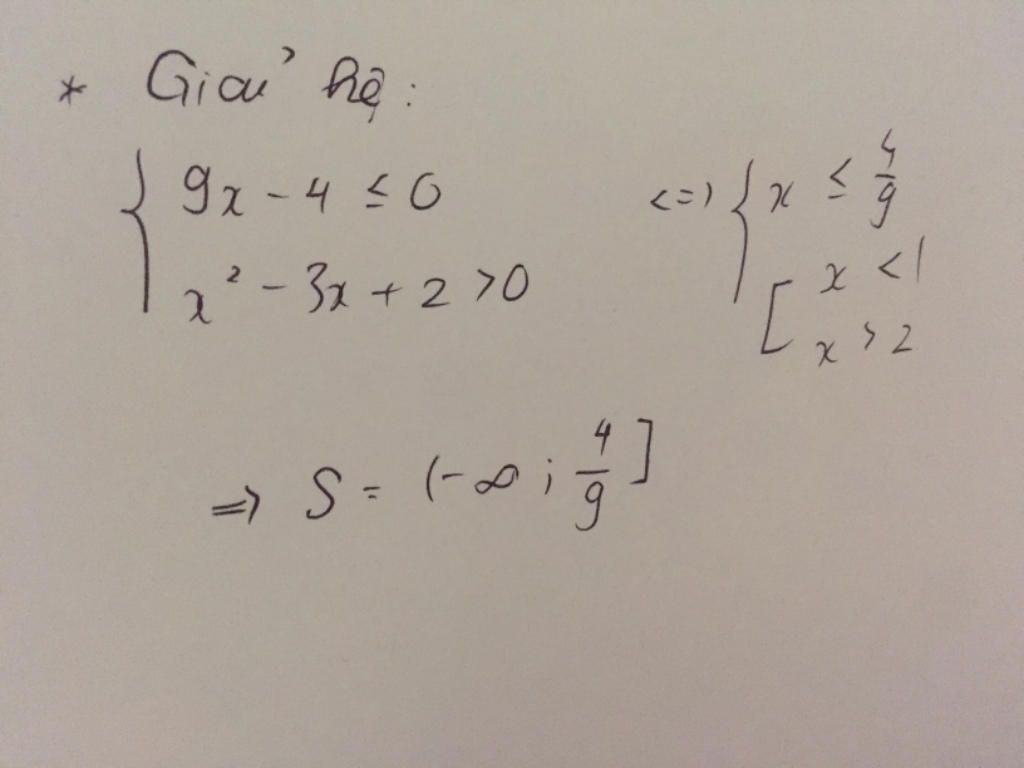 * Giải hệ:
{ 9x - 4 ≤ 0 <=> { x ≤ 4/9
x² - 3x + 2 > 0 [ x < 1
x > 2
=> S = (-∞ ; 4/9]